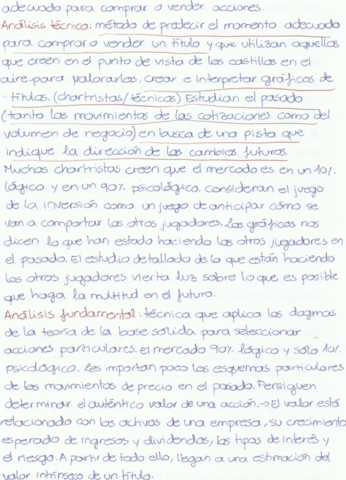 adecuado para comprar o vender acciones.
Análisis técnico: método de predecir el momento adecuado
para comprar o vender un título y que utilizan aquellos
que creen en el punto de vista de los castillos en el
aire para valorarlos. Crear e interpretar gráficos de
títulos. (chartristas/técnicos) Estudian el pasado
(tanto los movimientos de las cotizaciones como del
volumen de negocio) en busca de una pista que
indique la dirección de los cambios futuros.
Muchos chartristas creen que el mercado es en un 10%
lógico y en un 90% psicológico. Consideran el juego
de la inversión como un juego de anticipar cómo se
van a comportar los otros jugadores. Los gráficos nos
dicen lo que han estado haciendo los otros jugadores en
el pasado. El estudio detallado de lo que están haciendo
los otros jugadores vierta luz sobre lo que es posible
que haga la multitud en el futuro.
Análisis fundamental: técnica que aplica los dogmas
de la teoría de la base sólida para seleccionar
acciones particulares. El mercado 90% lógico y sólo 10%
psicológico. Les importan poco los esquemas particulares
de los movimientos de precio en el pasado. Persiguen
determinar el auténtico valor de una acción. → El valor está
relacionado con los activos de una empresa, su crecimiento
esperado de ingresos y dividendos, los tipos de interés y
el riesgo. A partir de todo ello, llegan a una estimación del
valor intrínseco de un título.